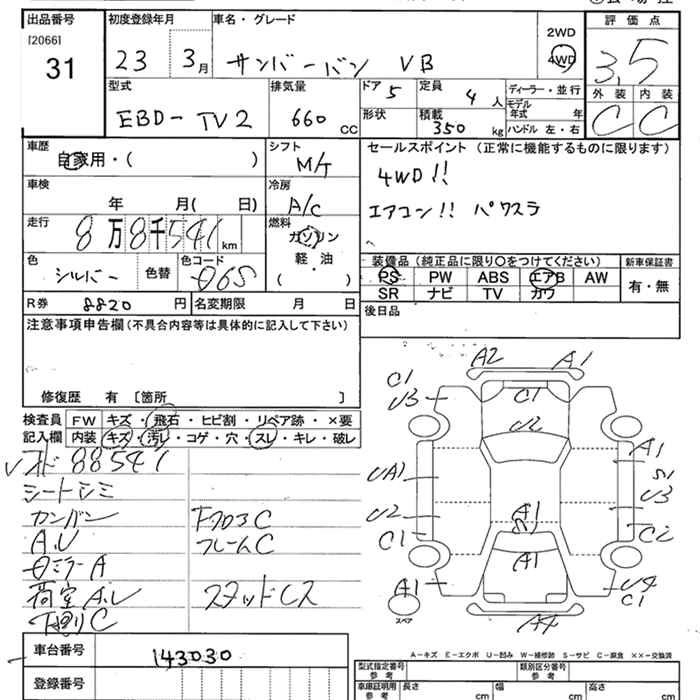 出品番号 初度登録年月 車名・グレード 評価点
[2066]
31 23 3月 サンバーバン VB 2WD 4WD 3.5
型式 排気量 ドア 5 定員 4人 ディーラー・並行 外装 内装
EBD-TV2 660 CC 形状 積載 350 kg モデル年式 年 ハンドル 左・右 C C
車歴 シフト セールスポイント (正常に機能するものに限ります)
自家用・( ) M/T 4WD!!
車検 年 月( 日) 冷房 A/C エアコン!! パワステ
走行 8万8千541km 燃料 ガソリン 軽・油 ( )
装備品(純正品に限り○をつけてください) 新車保証書
色 シルバー 色替 色コード PS PW ABS エアB AW 有・無
SR ナビ TV カワ
R券 8820円 名変期限 月 日 後日品
注意事項申告欄(不具合内容等は具体的に記入して下さい)
修復歴 有 [箇所 ]
検査員 FW キズ・飛石・ヒビ割・リペア跡・×要
記入欄 内装 キズ・汚レ・コゲ・穴・スレ・キレ・破レ
88541
シートシミ
カンバン 下クロスC
A.U フレームC
ミラーA
荷室A.U スタッドレス
C
A2 A1
C1 U3 C1
U2
UA1 A1
S1 U3
U2 A1
C1 A1 C2
A1 U4 C1
スペア A4
車台番号 143030
A-キズ E-エクボ U-凹み W-補修跡 S-サビ C-腐食 ××-交換済
登録番号 型式指定番号 参考 類別区分番号 参考
車庫証明用 参考 長さ cm 幅 cm 高さ cm